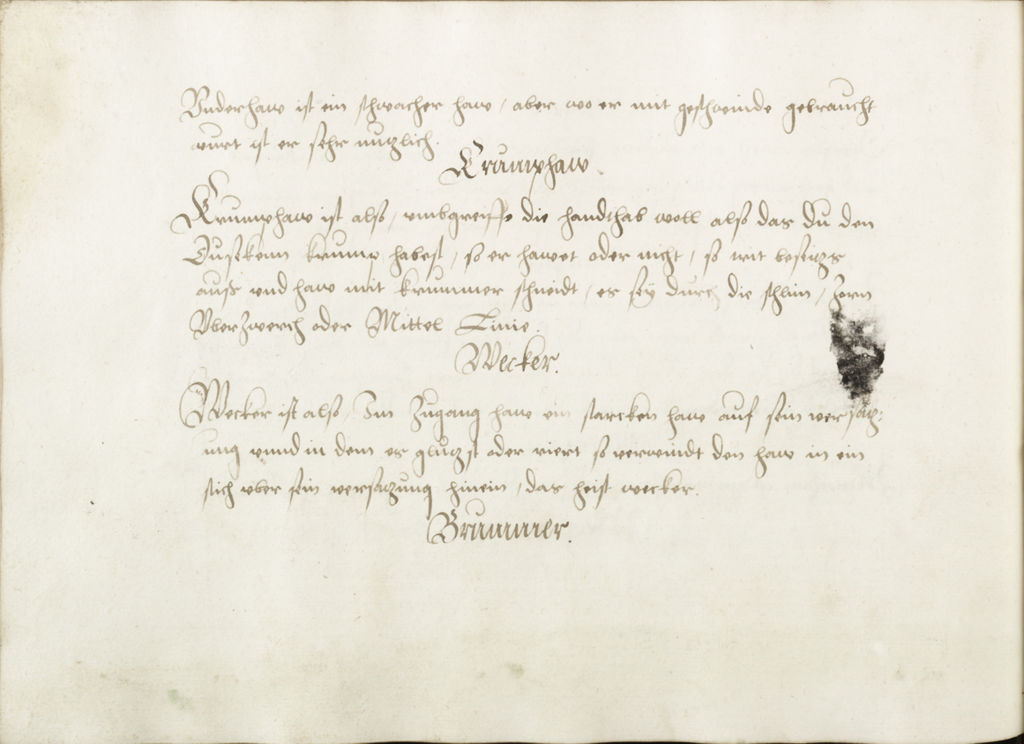 Vnderhaw ist ein schwacher haw, aber wo er mit geschwinde gebraucht
wurt ist er sehr nutzlich.
Krumphaw.
Krumphaw ist also, vmbgreiffe die handthab woll also das du den
krump habest, so er hawet oder nicht, so
auß vnd haw mit krummer schneidt, es sey durch die schlim, Zorn
Vberzwerch oder Mittel Linie.
Wecker.
Wecker ist also, Im Zugang haw ein starcken haw auf sein versatz:
ung vnnd in dem er oder so verwindt den haw in ein
stich vber sein versatzung hinein, das heist wecker.
Brummer.